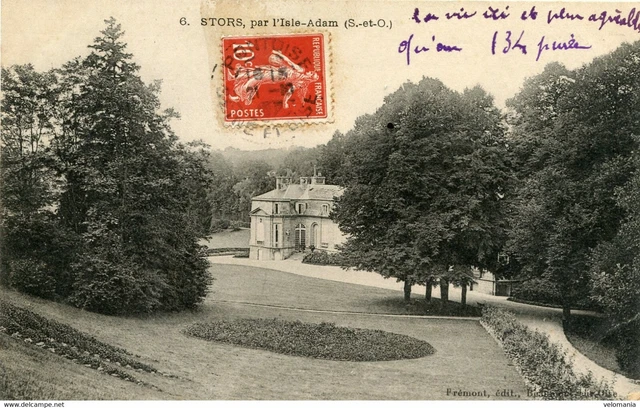 6. STORS, par l'Isle-Adam (S.-et-O.)
la vie ici est plus agréable
qu'au 134 
10c
RÉPUBLIQUE FRANÇAISE
POSTES
Frémont, édit., Beaumont-sur-Oise
© delcampe.net / velomania